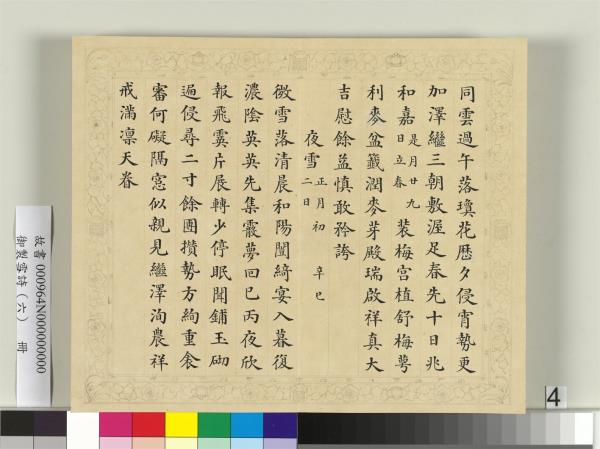 同雲過午落瓊花歷夕侵宵勢更
加澤繼三朝敷渥足春先十日兆
和嘉是月廿九日立春裝梅宮植舒梅萼
利麥盆籤潤麥芽殿瑞啟祥真大
吉慰餘益慎敢矜誇
夜雪正月初二日 辛巳
微雪落清晨和陽闓綺宴入暮復
濃陰英英先集霰夢回已丙夜欣
報飛霙片展轉少停眠聞鋪玉砌
遍侵尋二寸餘團攢勢方絢重衾
審何礙隔窓似親見繼澤洵農祥
戒滿凛天眷
故書 000964N000000000
御製雪詩（六） 冊
4